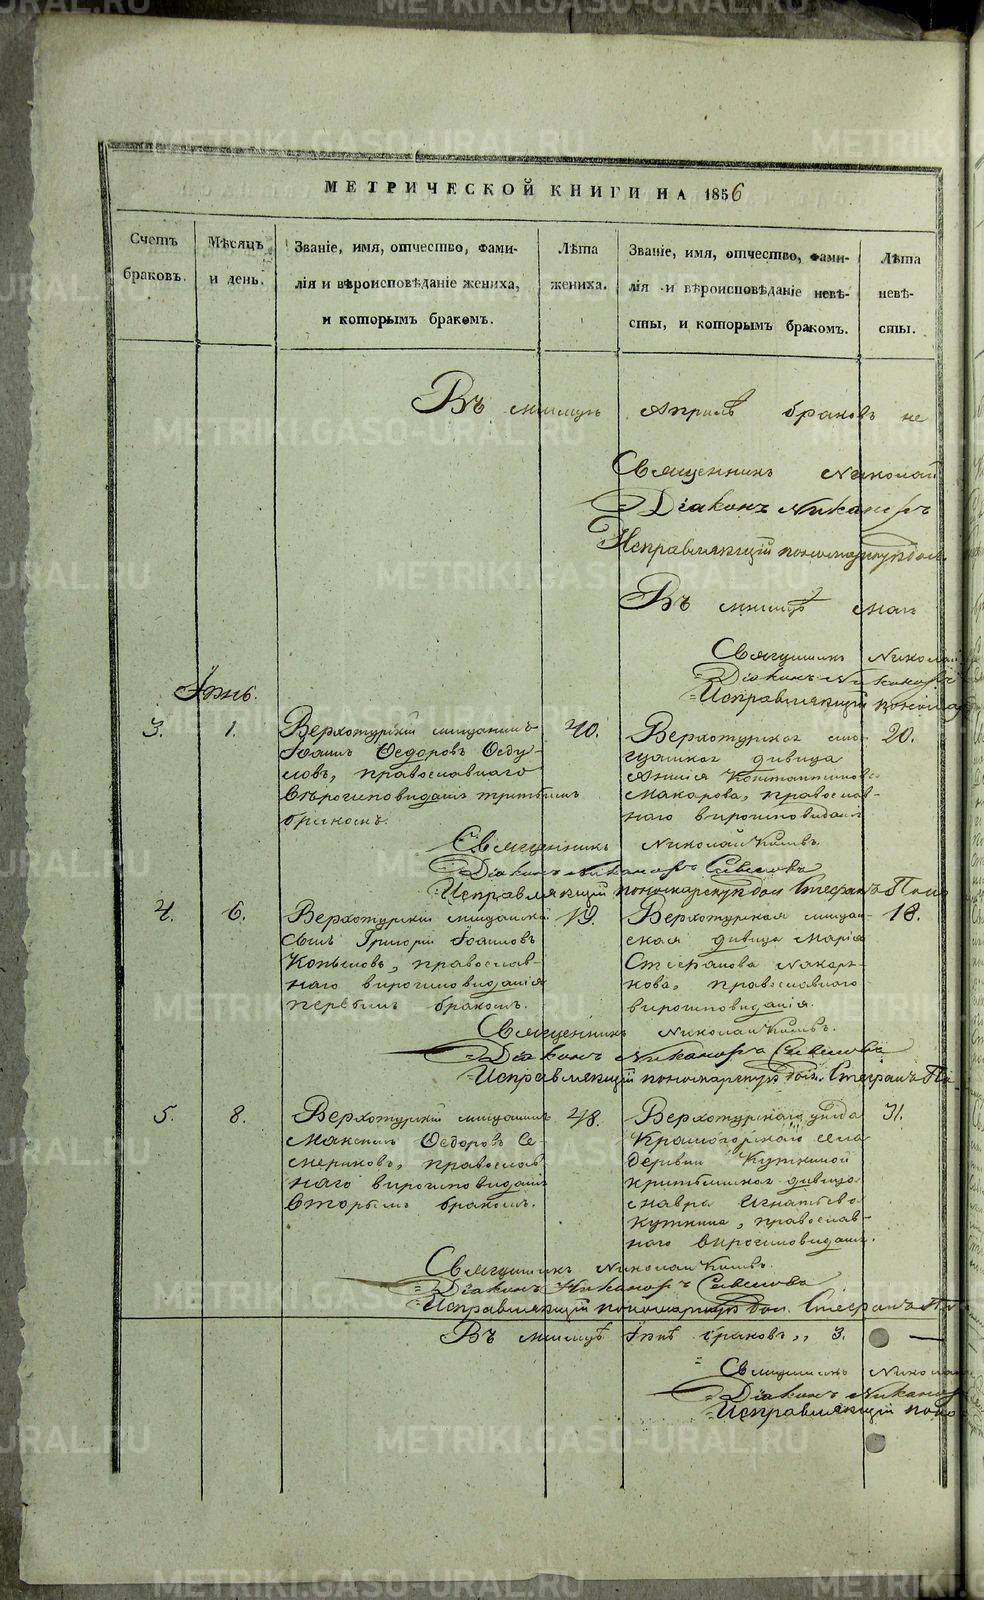 METRIKI.GASO-URAL.RU
МЕТРИЧЕСКОЙ КНИГИ НА 1856
Счетъ браковъ.
Мѣсяцъ и день.
Званіе, имя, отчество, фами-
лія и вѣроисповѣданіе жениха,
и которымъ бракомъ.
Лѣта
жениха.
Званіе, имя, отчество, фами-
лія и вѣроисповѣданіе невѣ-
сты, и которымъ бракомъ.
Лѣта
невѣ-
сты.
Въ мѣсяцѣ Апрѣлѣ браковъ не
Священникъ Николай
Діаконъ Никаноръ
Исправляющій пономарскую дол
Въ мѣсяцѣ маѣ
Священникъ Николай
Діаконъ Никаноръ
Исправляющій
Іюнь.
3. 1.
Верхотурскій мѣщанинъ
Іоаннъ Ѳедоровъ
православнаго
вѣроисповѣданія третьимъ
бракомъ.
40.
Верхотурская мѣ-
щанская дѣвица
Константинова
Макарова, православ-
наго вѣроисповѣданія
20.
Священникъ Николай
Діаконъ Никаноръ
Исправляющій пономарскую дол Стефанъ
4. 6.
Верхотурскій мѣщанскій
сынъ Григорій Іоанновъ
Копыловъ, православ-
наго вѣроисповѣданія
первымъ бракомъ.
19.
Верхотурская мѣщан-
ская дѣвица Марія
Стефанова
православнаго
вѣроисповѣданія.
18.
Священникъ Николай
Діаконъ Никаноръ
Исправляющій пономарскую дол. Стефанъ
5 8.
Верхотурскій мѣщанинъ
Ѳедоровъ Се-
мериковъ, православ
наго вѣроисповѣданія
вторымъ бракомъ.
48.
Верхотурскаго уѣзда
Красногорскаго села
деревни
дѣвица
Мавра Игнатьева
православ-
наго вѣроисповѣданія.
31.
Священникъ Николай
Діаконъ Никаноръ
Исправляющій пономарскую дол. Стефанъ
Въ мѣсяцѣ Іюнѣ браковъ,, 3.
Священникъ Николай
Діаконъ Никаноръ
Исправляющій поно